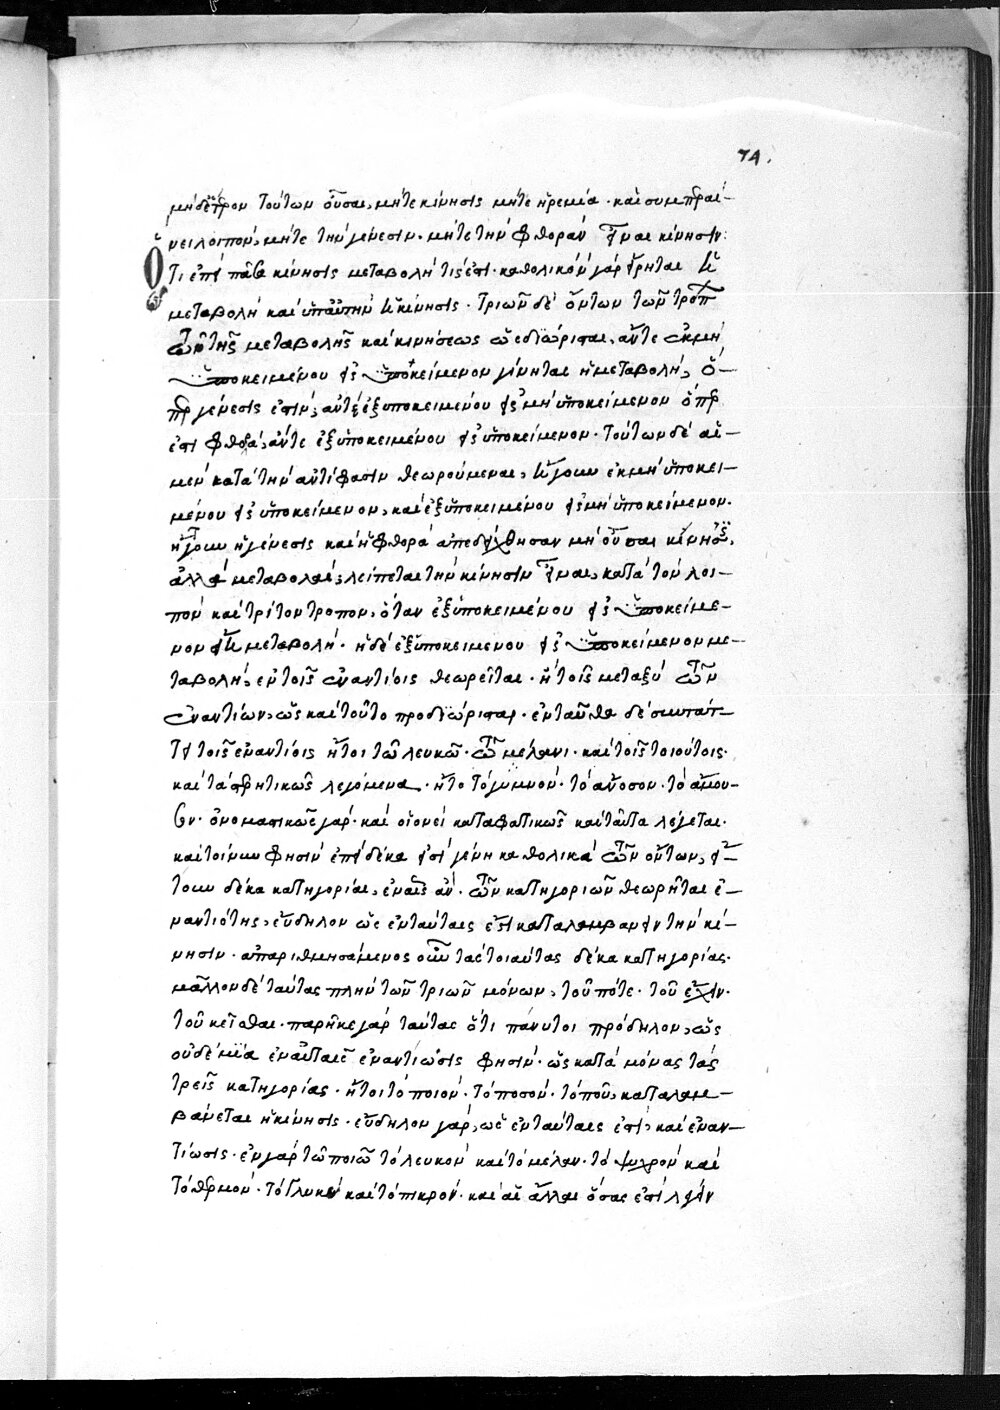 74.
μηδέτερον τούτων οὖσαι, μήτε κίνησις μήτε ἠρεμία· καὶ συμπεραί-
νει λοιπὸν, μήτε τὴν γένεσιν· μήτε τὴν φθορὰν εἶναι κίνησιν:
Ὅτι ἐπεὶ πᾶσα κίνησις μεταβολή τίς ἐστι· καθολικὸν γὰρ εἴρηται ἡ
μεταβολὴ καὶ ὑπ αὐτὴν ἡ κίνησις· τριῶν δὲ ὄντων τῶν τρόπων
τῆς μεταβολῆς καὶ κινήσεως ὡς διώρισται, ἄντε ἐκ μὴ
ὑποκειμένου εἰς ὑποκείμενον γίνηται ἡ μεταβολὴ, ὅ-
περ γένεσίς ἐστιν, ἄντε ἐξ ὑποκειμένου εἰς μὴ ὑποκείμενον ὅπερ
ἐστὶ φθορὰ, ἄντε ἐξ ὑποκειμένου εἰς ὑποκείμενον· τούτων δὲ αἱ
μὲν κατὰ τὴν ἀντίφασιν θεωρούμεναι, ἤγουν ἐκ μὴ ὑποκει-
μένου εἰς ὑποκείμενον, καὶ ἐξ ὑποκειμένου εἰς μὴ ὑποκείμενον·
ἤγουν ἡ γένεσις καὶ ἡ φθορὰ ἀπεδείχθησαν μὴ οὖσαι κινήσεις,
ἀλλὰ μεταβολαὶ, λείπεται τὴν κίνησιν εἶναι, κατὰ τὸν λοι-
πὸν καὶ τρίτον τρόπον, ὅταν ἐξ ὑποκειμένου εἰς ὑποκείμε-
νον εἴη μεταβολή· ἡ δὲ ἐξ ὑποκειμένου εἰς ὑποκείμενον με-
ταβολὴ, ἐν τοῖς ἐναντίοις θεωρεῖται· ἢ τοῖς μεταξὺ τῶν
ἐναντίων, ὡς καὶ τοῦτο προδιώρισται· ἐνταῦθα δὲ συντάτ-
τει τοῖς ἐναντίοις ἤτοι τῶ λευκῶ· τῶ μέλανι· καὶ τοῖς τοιούτοις·
καὶ τὰ στερητικῶς λεγόμενα· ἤτοι τὸ γυμνὸν· τὸ ἄνοσον· τὸ ἄμου-
σον· ὀνομαστικῶς γὰρ· καὶ οἱονεὶ καταφατικῶς καὶ ταῦτα λέγεται·
καὶ τοίνυν φησὶν ἐπεὶ δέκα εἰσὶ γένη καθολικὰ τῶν ὄντων, εἴ-
τουν δέκα κατηγορίαι, ἐν αἷς ἂν· τῶν κατηγοριῶν θεωρῆται ἐ-
ναντιότης, εὔδηλον ὡς ἐν ταύταις ἐστὶ καταλαμβάνειν τὴν κί-
νησιν· ἀπαριθμησάμενος οὖν τὰς τοιαύτας δέκα κατηγορίας·
μᾶλλον δὲ ταύτας πλὴν τῶν τριῶν μόνων, τοῦ πότε· τοῦ ἔχειν·
τοῦ κεῖσθαι· παρῆκε γὰρ ταύτας ὅτι πάνυ τοι πρόδηλον, ὡς
οὐδεμία ἐν αὐταῖς ἐναντίωσις φησὶν· ὡς κατὰ μόνας τὰς
τρεῖς κατηγορίας· ἤτοι τὸ ποιὸν· τὸ ποσὸν· τὸ ποῦ, καταλαμ-
βάνεται ἡ κίνησις· εὔδηλον γὰρ, ὡς ἐν ταύταις ἐστὶ, καὶ ἐναν-
τίωσις· ἐν γὰρ τῶ ποιῶ τὸ λευκὸν καὶ τὸ μέλαν· τὸ ψυχρὸν καὶ
τὸ θερμὸν· τὸ γλυκὺ καὶ τὸ πικρὸν· καὶ αἱ ἄλλαι ὅσας ἐστὶ λέγειν